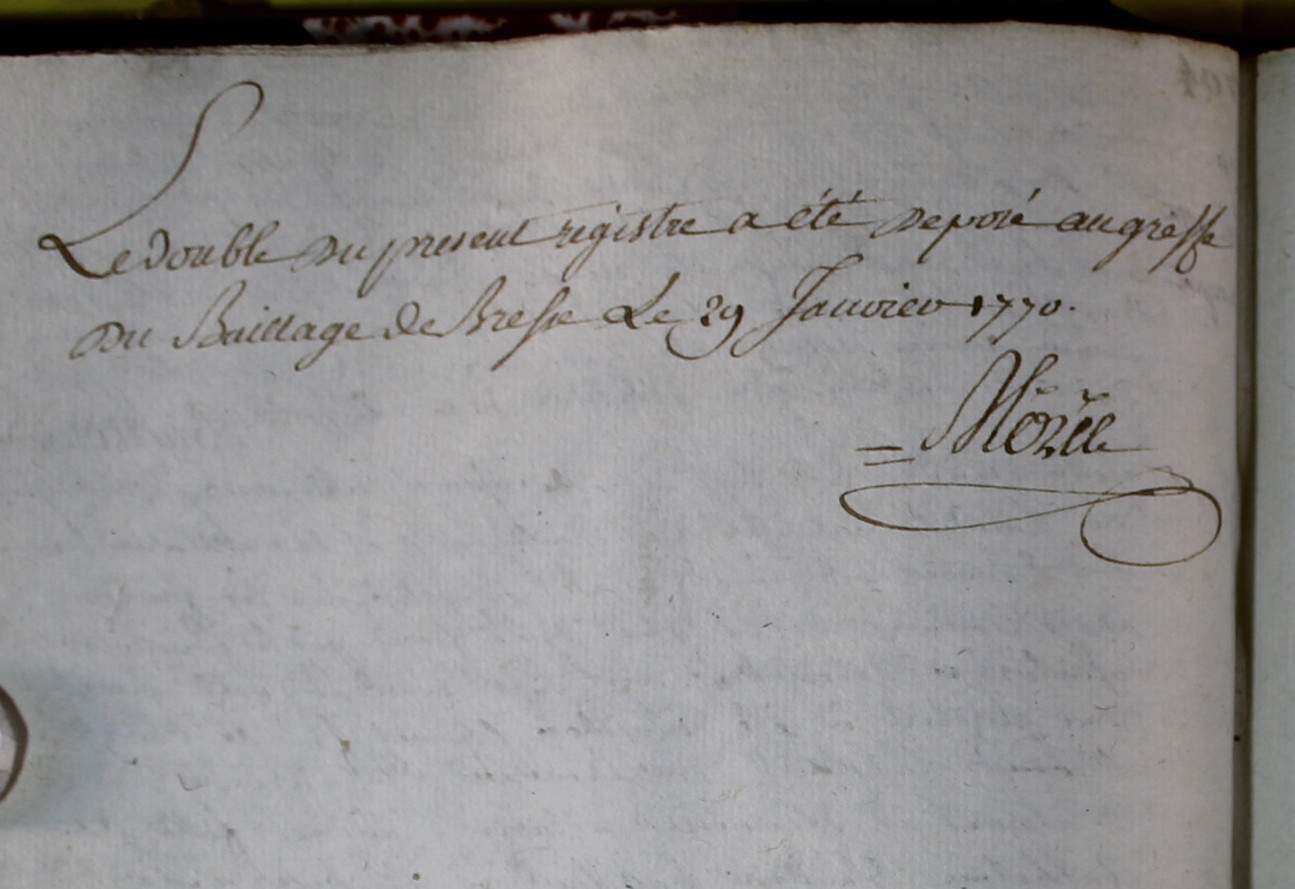 Le double du present registre a été deposé au greffe
du Bailliage de Bresse Le 29 Janvier 1770.